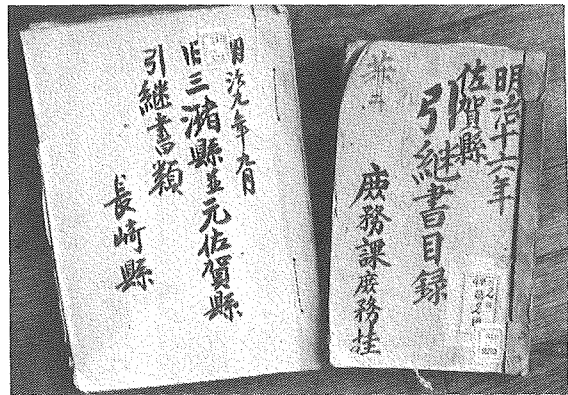 明治九年九月
旧三潴縣並元佐賀縣
引継書類
長崎縣
明治十六年
佐賀縣
引継書目録
庶務課庶務掛